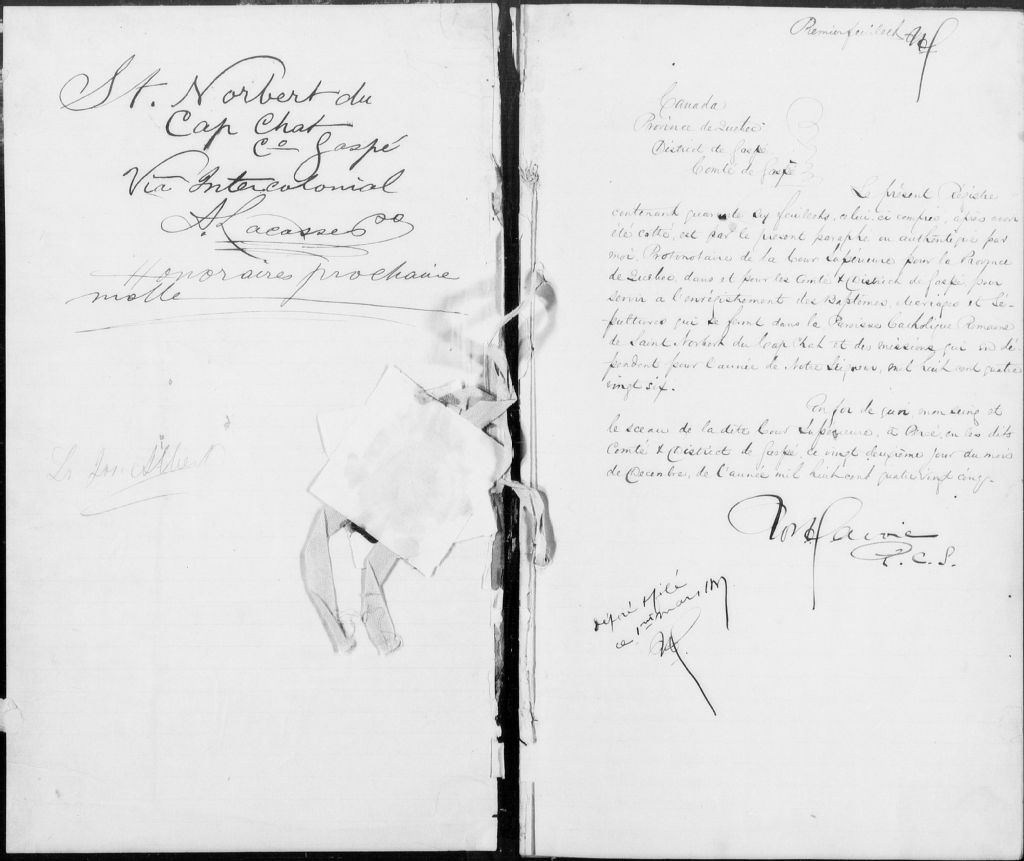 St. Norbert du
Cap Chat
Co Gaspé
Via Intercolonial
A. Lacasse
Honoraires prochaine
malle
Premier feuillet
Canada
Province de Quebec
District de Gaspé
Comté de Gaspé
Le présent Registre
contenant quarante six feuillets, celui-ci compris, après avoir
été cotté, est par le présent paraphé ou authentiqué par
moi, Protonotaire de la Cour Superieure pour la Province
de Quebec, dans et pour les Comté & District de Gaspé, pour
servir a l'enregistrement des Baptêmes, Mariages et Sé-
pultures qui se feront dans la Paroisse Catholique Romaine
de Saint Norbert du Cap Chat et des missions qui en dé-
pendent pour l'année de Notre Seigneur, mil huit cent quatre
vingt six.
En foi de quoi, mon seing et
le sceau de la dite Cour Superieure, à Percé, en les dits
Comté & District de Gaspé, ce vingt deuxième jour du mois
de Decembre, de l'année mil huit cent quatre vingt cinq.
P.C.S.
Déposé & filé
ce 1er mars